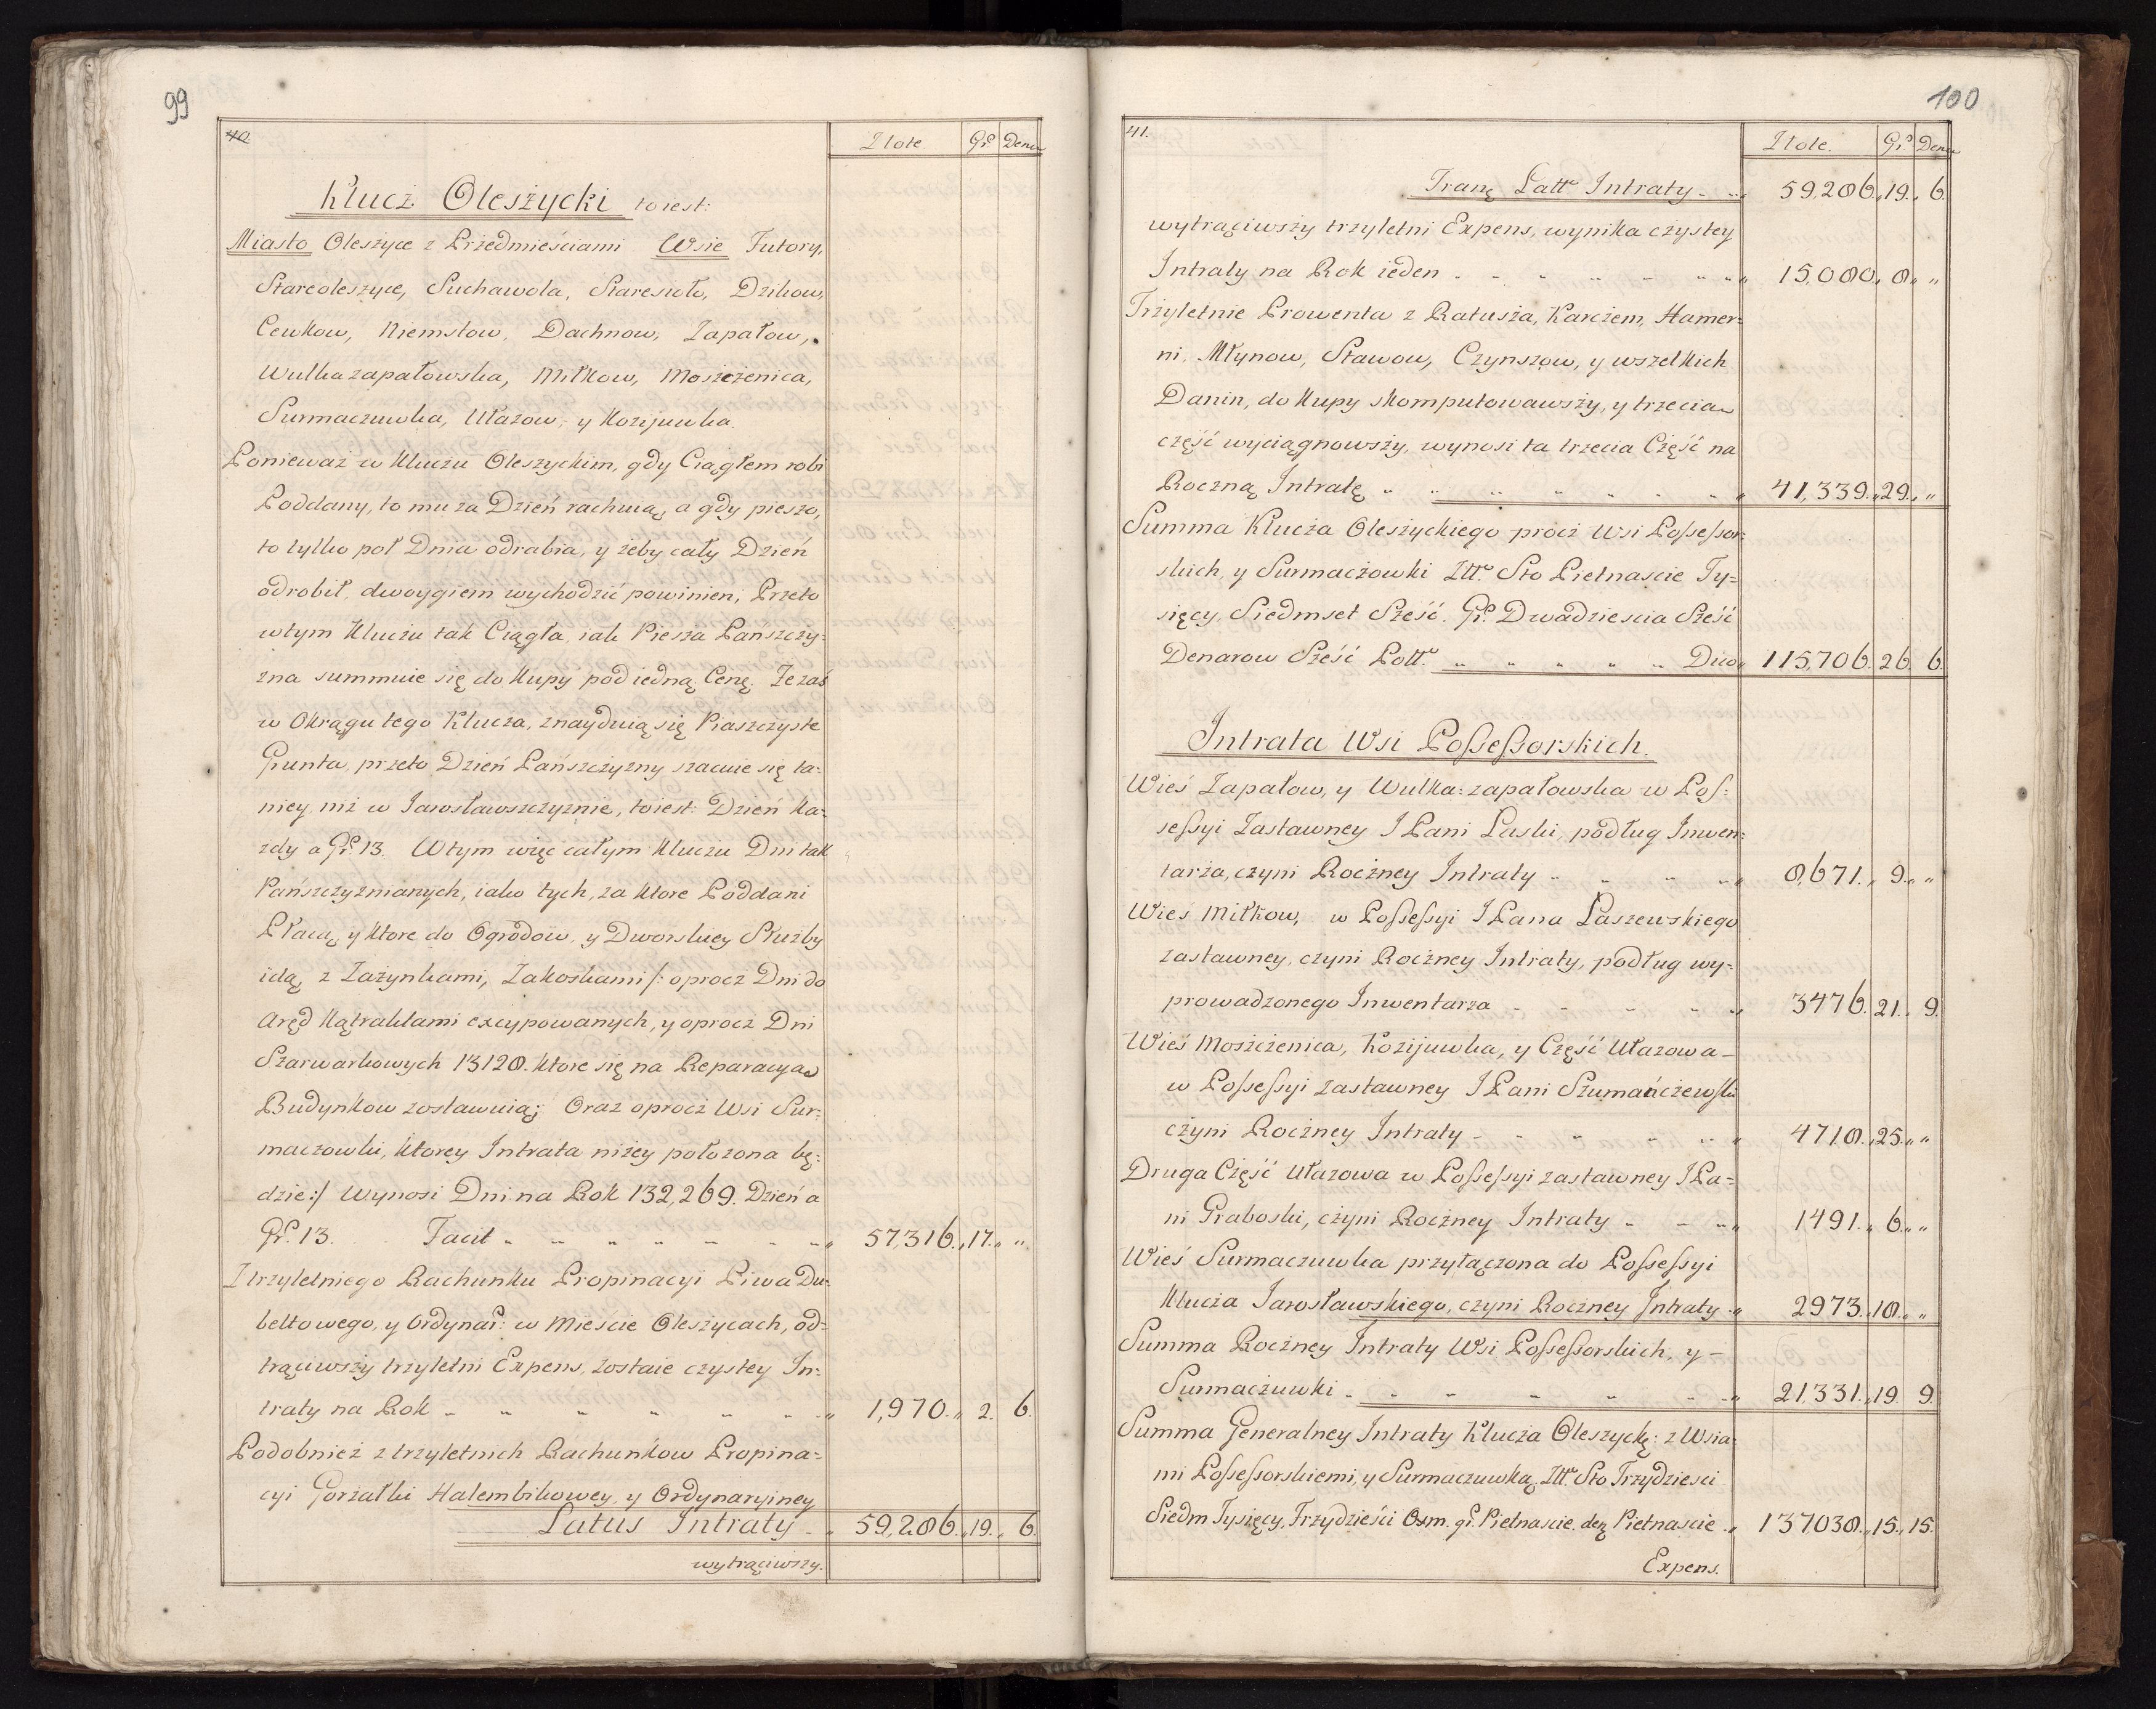 99
40
Złote. Gr. Dena
Klucz Oleszycki to iest:
Miasto Oleszyce z Przedmieściami Wsie Futory,
Stareoleszyce, Suchawola, Staresioło, Dzikow,
Cewkow, Niemstow, Dachnow, Zapałow,
Wulkazapałowska, Miłkow, Moszczenica,
Surmaczuwka, Ułazow, y Kozijuwka.
Ponieważ w Kluczu Oleszyckim, gdy Ciągłem robi
Poddany, to mu za Dzień rachuią, a gdy pieszo,
to tylko poł Dnia odrabia, y żeby cały Dzień
odrobił, dwoygiem wychodzić powinien; Przeto
wtym Kluczu tak Ciągła, iak Piesza Pańszczy-
zna summuie się do Kupy pod iedną Cenę. Ze zaś
w Okrągu tego Klucza, znayduią się Piaszczyste
Grunta, przeto Dzień Pańszczyzny szacuie się ta-
niey niż w Jarosławszczyznie, toiest: Dzień Ka-
zdy a Gr. 13. Wtym więc całym Kluczu Dni tak
Pańszczyznianych, iako tych, za Ktore Poddani
Płacą, y Ktore do Ogrodow, y Dworskiey Służby
idą, z Zażynkami, Zakoskami /: oprocz Dni do
Aręd Kątraktami excypowanych, y oprocz Dni
Szarwarkowych 13128. Ktore się na Reparacya
Budynkow zostawuią; Oraz oprocz Wsi Sur-
maczowki, Ktorey Intrata niżey położona bę-
dzie :/ Wynosi Dni na Rok 132,269. Dzień a
Gr. 13. Facit „ „ „ „ „ „ 57,316. „ 17. „ „
Z trzyletniego Rachunku Propinacyi Piwa Du-
beltowego, y Ordynar: w Mieście Oleszycach, od-
trąciwszy trzyletni Expens, zostaie czystey In-
traty na Rok „ „ „ „ „ „ 1,970. „ 2. 6.
Podobnież z trzyletnich Rachunkow Propina-
cyi Gorzałki Halembikowey, y Ordynaryiney
Latus Intraty „ 59,286. „ 19. „ 6.
wytrąciwszy.
100
41.
Złote. Gr. Dena
Tranę Latt. Intraty „ 59,286. „ 19. „ 6.
wytrąciwszy trzyletni Expens, wynika czystey
Intraty na Rok ieden „ „ „ „ „ 15,080. „ 8. „ „
Trzyletnie Prowenta z Ratusza, Karczem, Hamer-
ni, Młynow, Stawow, Czynszow, y wszelkich
Danin, do Kupy skomputowawszy, y trzecia
część wyciągnowszy, wynosi ta trzecia Część na
Roczną Intratę „ „ „ „ „ „ „ 41,339. „ 29. „ „
Summa Klucza Oleszyckiego procz Wsi Possessor-
skich, y Surmaczowki Złł. Sto Pietnascie Ty-
sięcy, Siedmset Sześć. Gr. Dwadziescia Sześć
Denarow Sześć Poll. „ „ „ „ „ Dico „ 115,706. 26. 6.
Intrata Wsi Possessorskich.
Wieś Zapałow, y Wulka-zapałowska w Pos-
sessyi Zastawney J Pani Laski, podług Inwen-
tarza, czyni Roczney Intraty „ „ „ „ 8,671. „ 9. „ „
Wieś Miłkow, w Possessyi J Pana Paszewskiego
zastawney, czyni Roczney Intraty, podług wy-
prowadzonego Inwentarza „ „ „ „ „ 3476. 21. „ 9.
Wieś Moszczenica, Kozijuwka, y Część Ułazowa -
w Possessyi zastawney J Pani Szumańczewski
czyni Roczney Intraty „ „ „ „ „ 4718. „ 25. „ „
Druga Część Ułazowa w Possessyi zastawney J Pa-
ni Graboski, czyni Roczney Intraty „ „ „ 1491. „ 6. „ „
Wieś Surmaczuwka przyłączona do Possessyi
Klucza Jarosławskiego, czyni Roczney Intraty „ 2973. „ 18. „ „
Summa Roczney Intraty Wsi Possessorskich, y -
Surmaczuwki „ „ „ „ „ „ 21,331. „ 19. 9.
Summa Generalney Intraty Klucza Oleszyckę: z Wsia-
mi Possessorskiemi, y Surmaczuwką, Złł. Sto Trzydziesci
Siedm Tysięcy, Trzydzieści Osm. gr. Pietnascie. denę Pietnascie „ 137038. „ 15. „ 15.
Expens.